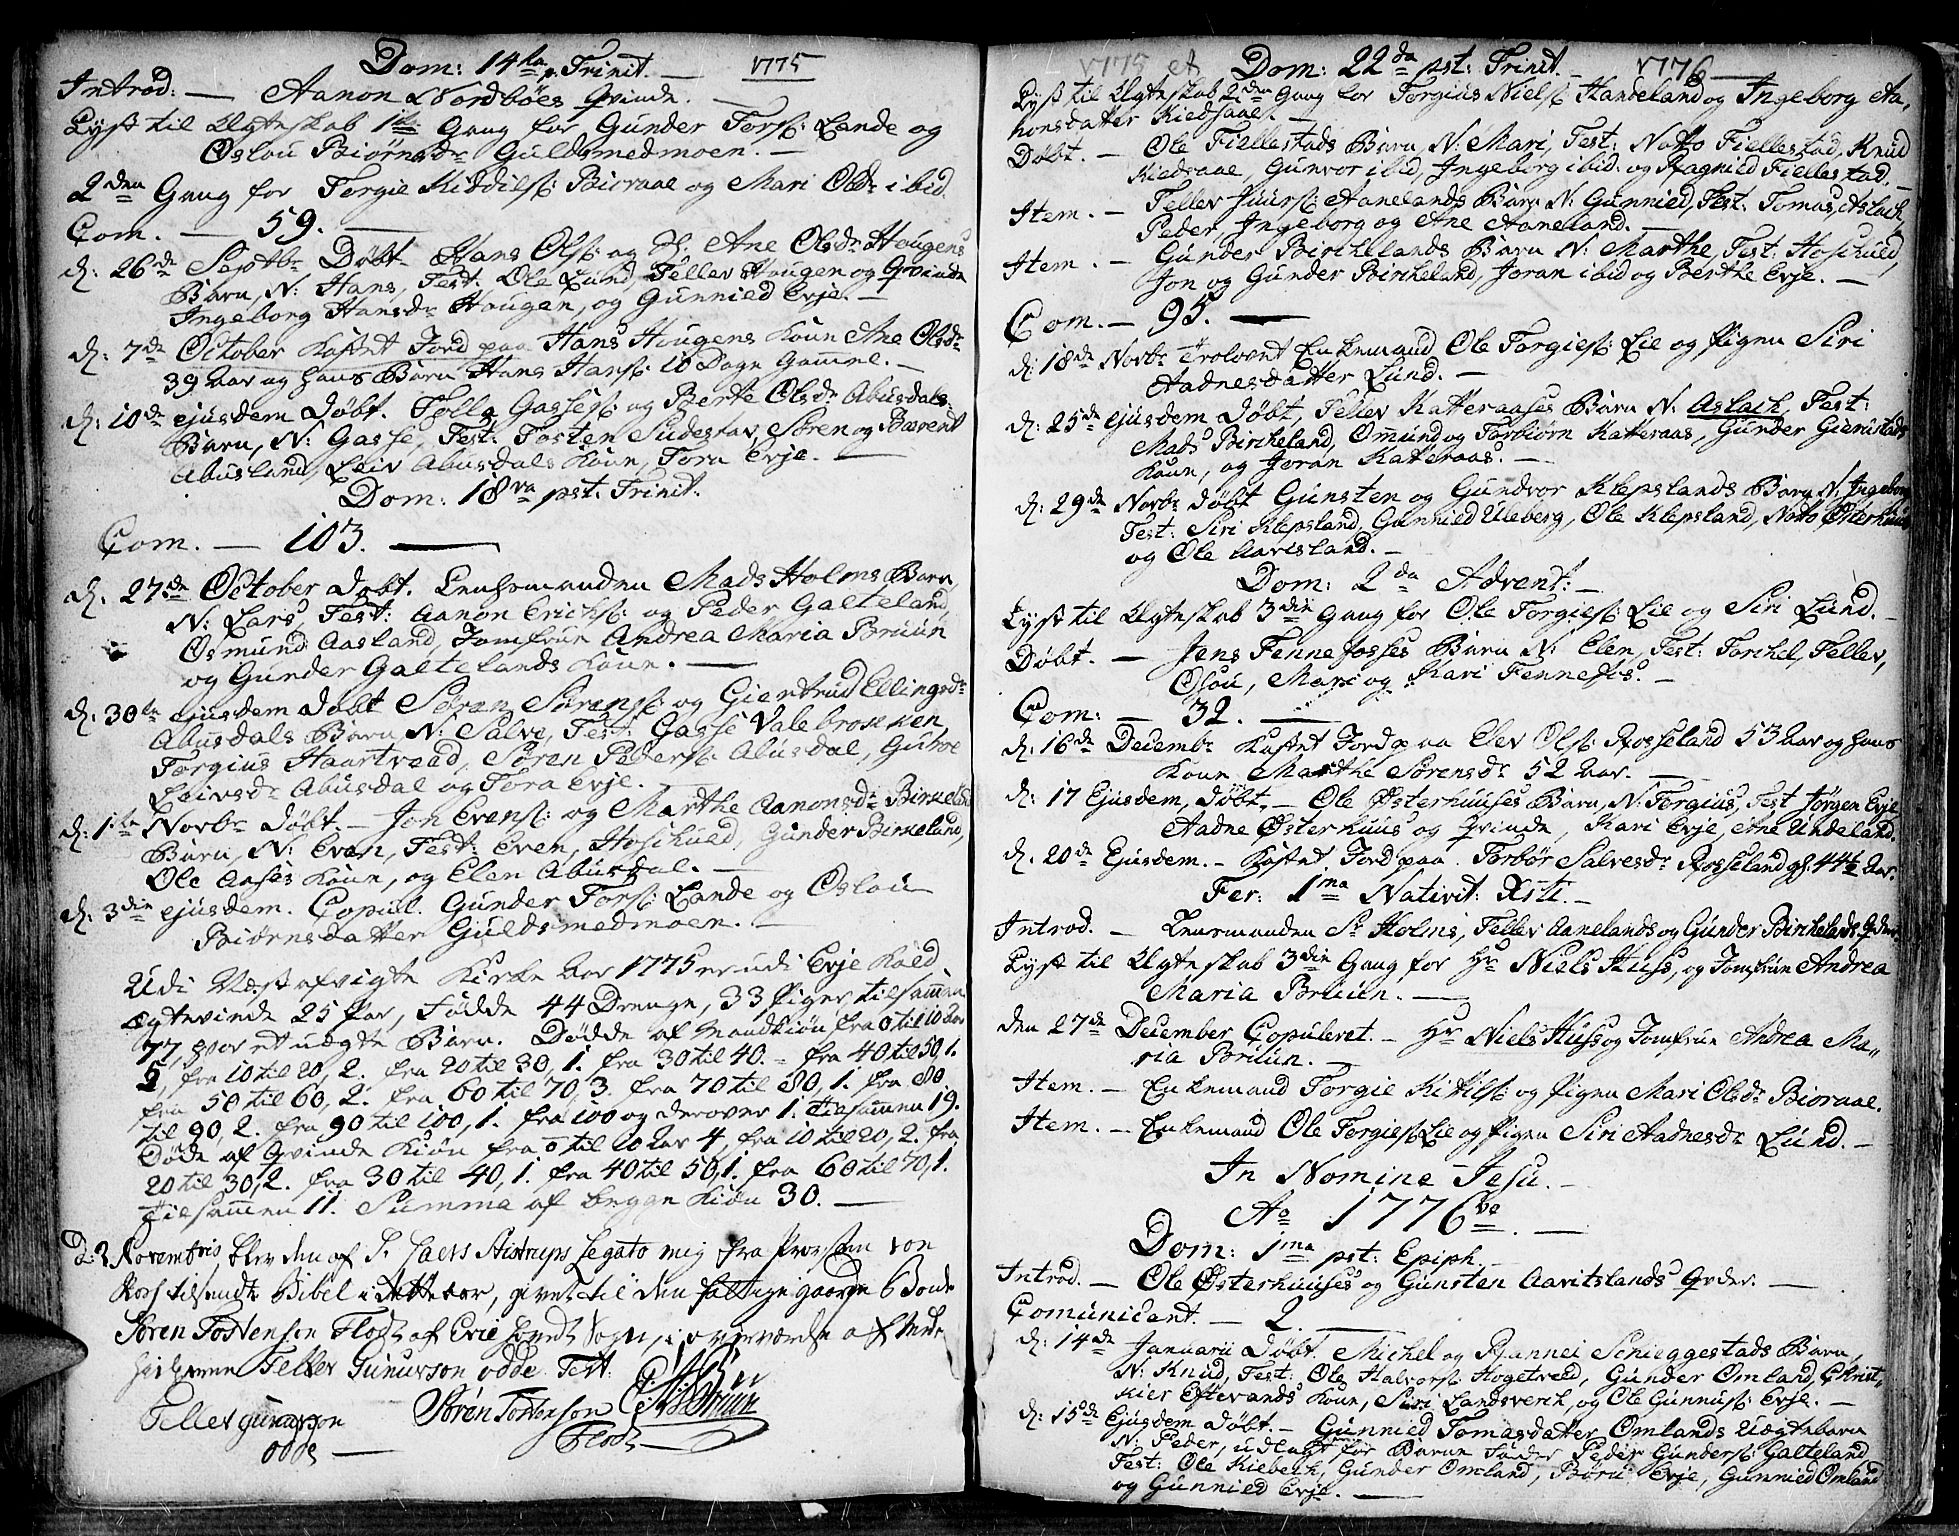 Dom: 14ta p. Trinit. — 1775
Introd: — Aanon Nordböes Qvinde. —
Lyst til Ægteskab 1te Gang for Gunder Torsß: Lande og
Oslou Biörnsdr Guldsmedmoen. —
2den Gang for Torgie Kiddilsß: Bioraae og Mari Olsdr ibid.
Com. — 59. —
d: 26de Septbr Döbt Hans Olsß: og Ane Olsdr Hougens
Barn, N: Hans, Test: Ole Lund, Tellev Hougen og Qvinde
Ingeborg Hansdr Hougen, og Gunnied Evje. —
d: 7de October Kastet Jord paa Hans Hougens Koun Ane Olsdr
39 Aar og hans Barn Hans Hansß: 10 Dage Gammel. —
d: 10de ejusdem Döbt. Tolle Gassesß: og Berte Olsdr Abusdals
Barn, N: Gasse, Test: Tosten Sudestav, Sören og Bærent
Abusland, Leiv Abusdals Koun, Tora Evje. —
Dom: 18va pst: Trinit:
Com. — 103. —
d: 27de October Döbt. Lensmanden Mads Holms Barn,
N: Lars, Test: Aanon Erichsß: og Peder Galteland,
Osmund Aasland, Jomfrue Andrea Maria Bruun
og Gunder Galtelands Koun. —
d: 30te ejusdem Döbt Sören Sörensß: og Giertrud Ellingsdr
Abusdals Barn N: Salve, Test: Gasse Valebrokken
Torgius Haartvead, Sören Pedersß: Abusdal, Guroe
Leivsdr Abusdal og Tora Evje. —
d: 1te Novbr Döbt. — Jon Evensß: og Marthe Aanonsdr Birkeland
Barn, N: Even, Test: Even, Hoschuld, Gunder Birkeland,
Ole Aasens Koun, og Elen Abusdal. —
d: 3die ejusdem. Copul. Gunder Torsß: Lande og Oslou
Biörnsdatter Guldsmedmoen. —
Udi Næst afvigte Kirke Aar 1775 er udi Evje Kald
Ægtevinde 25 Par, Födde 44 Drenge, 33 Piger, tilsammen
77, hvor et uægte Barn. Dödde af Mandkiön fra 0 til 10 Aar
5, fra 10 til 20, 2. fra 20 til 30, 1. fra 30 til 40. – fra 40 til 50, 1.
fra 50 til 60, 2. fra 60 til 70, 3. fra 70 til 80, 1. fra 80
til 90, 2. fra 90 til 100, 1. fra 100 og derover 1. tilsammen 19.
Döde af Qvinde Kiön fra 0 til 10 Aar 4, fra 10 til 20, 2. fra
20 til 30, 2. fra 30 til 40, 1. fra 40 til 50, 1. fra 60 til 70, 1.
tilsammen 11. Summa af begge Kiön 30. —
d: 3 Novembris, blev den af Legato mig fra Provsten von
tilsendte Bibel i dette Aar, givet til den fattige gaard 6 Bonde
Sören Tostensön Flodt af Evje Hoved Sogn, i overværelse af Mede
Tellev Gunursson Odde. Test:
Tellev Gunursson Sören Tostensön
Odde — Flodt —
1775 et Dom: 22da pst: Trinit. — 1776 —
Lyst til Ægteskab 2den Gang for Torgius Nielsß: Handeland og Ingeborg Aa,
nonsdatter Kiedsaae. —
Döbt. — Ole Fiellestads Barn, N: Mari, Test: Notto Fiellestad, Knud
Kiedsaae, Gunvor ibid, Ingeborg ibid: og Ragnild Fiellestad. —
Item. — Tellev Aanelands Barn N: Gunnied, Test: Tomas, Aslach
Peder, Ingeborg og Ane Aaneland. —
Item. — Gunder Birchelands Barn N: Marthe, Test: Hoschuld,
Jon og Gunder Bircheland, Joran ibid og Berthe Evje. —
Com. — 95. —
d: 18de Novbr Trolovet Enkemand Ole Torgiesß: Lie og Pigen Siri
Aadnesdatter Lund. —
d: 25de ejusdem Döbt, Tellev Katteraases Barn N: Aslach, Test:
Mads Bircheland, Ommund og Torbiörn Katteraas, Gunder Gierustads
Koun, og Joran Katteraas. —
d: 29de Novbr Döbt Gunsten og Gundvor Klepslands Barn N: Ingeborg
Test: Siri Klepsland, Gunnied Uleberg, Ole Klepsland, Notto Österhuus
og Ole Aarisland. —
Dom: 2da Advent: —
Lyst til Ægteskab 3die Gang for Ole Torgiesß: Lie og Siri Lund. —
Döbt. — Jens Fennefosses Barn N: Elen, Test: Torchel, Tellev,
Oslou, Mari og Kari Fennefos. —
Com: — 32. —
d: 16de Decembr Kastet Jord paa Elev Olsß: Rosseland 53 Aar og hans
Koun Marthe Sörensdr 52 Aar. —
d: 17 Ejusdem, Döbt. — Ole Österhuuses Barn, N: Torgius, Test Jörgen Evje
Aadne Österhuus og Qvinde, Kari Evje, Ane Undeland.
d: 20de Ejusdem. — Kastet Jord paa Torbör Salvesdr Rosseland gl: 44½ Aar.
Fer: 1ma Nativit: Xsti. —
Introd. — Lensmanden Sr Holms, Tellev Aanelands og Gunder Birchelands Qvder.
Lyst til Ægteskab 3die Gang for Hr Niels Huss, og Jomfrue Andrea
Maria Bruun. —
den 27de December Copuleret. — Hr Niels Huss og Jomfrue Andrea Ma„
ria Bruun. —
Item. — Enkemand Torgie Kittilsß: og Pigen Mari Olsdr Bioraae.
Item. — Enkemand Ole Torgiesß: Lie og Pigen Siri Aadnesdr Lund. —
In Nomine Jesu. —
Ao 1776ve. —
Dom: 1ma pst: Epiph. —
Introd. — Ole Österhuuses og Gunsten Aaritslands Qvder. —
Comunicant. — 2. —
d: 14de Januarii Döbt. Michel og Rannei Schieggestads Barn,
N: Knud, Test: Ole Halvorsß: Hogetveid, Gunder Omland, Christ,
Kier Eftevands Koun, Siri Landsverch, og Ole Gunnusß: Evje. —
d: 15de Ejusdem Döbt. — Gunnied Tomasdatter Omlands Uægte barn
N: Peder, udlagt for Barne Fader Peder Gundersß: Galteland
Test: Ole Kiebech, Gunder Omland, Böru Evje, Gunnied Omland
og Gunnied Evje. —